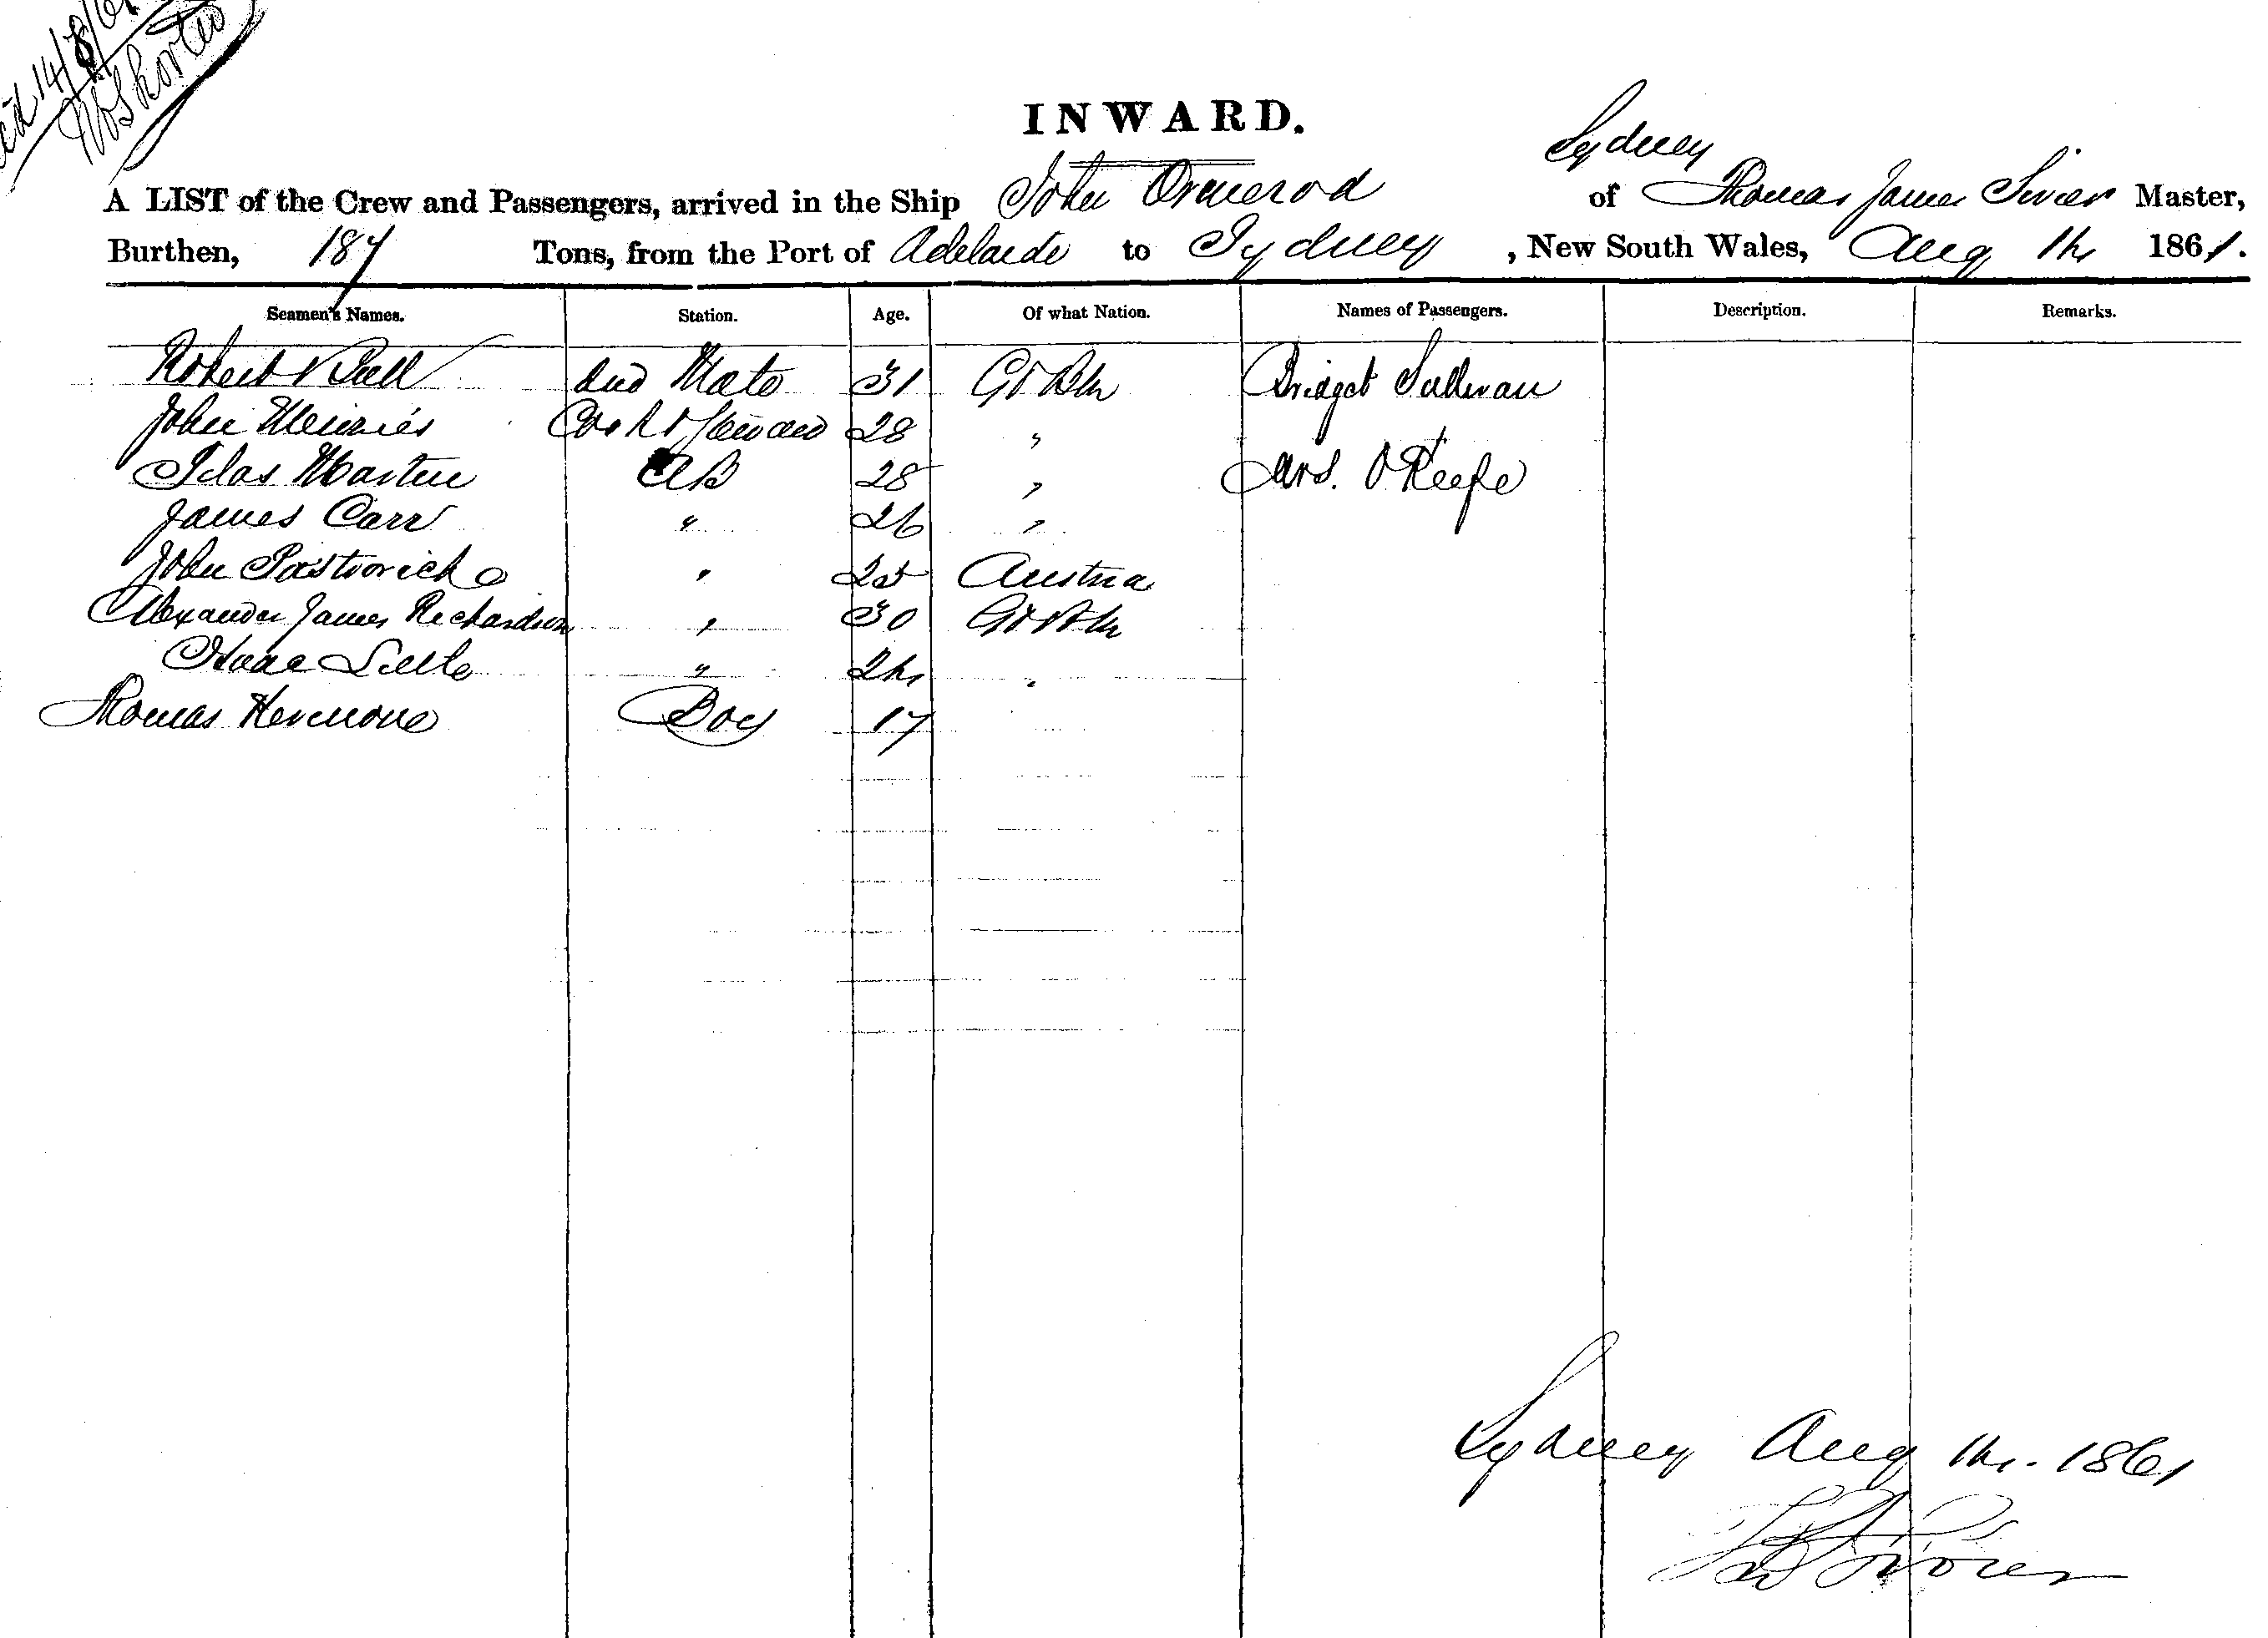 14/8/61
INWARD.
Sydney
A LIST of the Crew and Passengers, arrived in the Ship John Ormerod of Thomas James Master,
Burthen, 187 Tons, from the Port of Adelaide to Sydney, New South Wales, Aug 14 1861.
Seamen's Names. Station. Age. Of what Nation. Names of Passengers. Description. Remarks.
Robert Mate 31 Gt Btn Bridget Sullivan
John Menzies Cook & Steward 28 "
Silas Martin AB 28 " Mrs. O'Keefe
James Carr " 26 "
John " 25 Austria
Alexander James Richardson " 30 Gt Btn
Isaac Little " 24 "
Thomas Boy 17
Sydney Aug 14. 1861